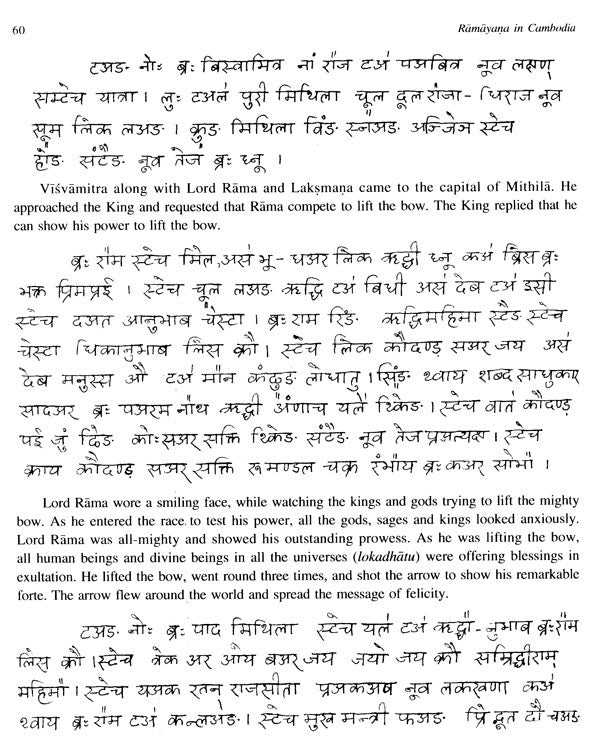 60 Rāmāyaṇa in Cambodia
टअङ· नोः ब्रः बिस्वामित्र नां रौज टअं पअबित्र नूव लक्सण
सम्टेच यात्रा । लुः टअलं पुरी मिथिला चूल दूल राजा - धिराज नूव
सूम लिक लअङ । क्रुङ मिथिला विंङ· स्नअङ· अञ्जिञ स्टेच
नूव तेजं ब्रः ध्नू ।
Viśvāmitra along with Lord Rāma and Lakṣmaṇa came to the capital of Mithilā. He
approached the King and requested that Rāma compete to lift the bow. The King replied that he
can show his power to lift the bow.
ब्रः रौम स्टेच मिल,असं भू - धअर लिक ऋद्धी ध्नू कअं ब्रिस ब्रः
भक्त प्रिमप्रई । स्टेच चूल लअङ ऋद्धि टअं बिधी असं देब टअं इसी
स्टेच दअत आनुभाब चेस्टा । ब्रः राम रिङ· ऋद्धिमहिमा स्टैङ स्टेच
चेस्टा धिकानुभाब लिस क्रौ । स्टेच लिक कौदण्ड सअर जय असं
देब मनुस्स औ टअं मौन कंढुङ लोधातु । सिंङ· थ्वाय शब्द साधुकार
सादअर ब्रः पअरम नौथ ऋद्धी अंणाच यलं थ्किेङ । स्टेच वातं कौदण्ड
पई जुं दिङ· कोःसअर सक्ति थ्किेङ· संटैङ· नूव तेज प्रअत्यक्ष । स्टेच
क्राय कौदण्ड सअर सक्ति रूमण्डल चक्र रंभौय ब्रःकअर सोभौ ।
Lord Rāma wore a smiling face, while watching the kings and gods trying to lift the mighty
bow. As he entered the race to test his power, all the gods, sages and kings looked anxiously.
Lord Rāma was all-mighty and showed his outstanding prowess. As he was lifting the bow,
all human beings and divine beings in all the universes (lokadhātu) were offering blessings in
exultation. He lifted the bow, went round three times, and shot the arrow to show his remarkable
forte. The arrow flew around the world and spread the message of felicity.
टअङ· नोः ब्रः पाद मिथिला स्टेच यलं टअं ऋद्धौ - नुभाब ब्रःरौम
लिस क्रौ ।स्टेच त्रेक अर ओय बअर जय जयो जय क्रौ सम्रिद्धीराम
महिमौ । स्टेच यअक रतन राजसीता प्रअकअप नूव लकखणा कअं
थ्वाय ब्रः रौम टअं कन्लअङ· । स्टेच मुख मन्त्री फअङ प्रि दूत दौ चअङ